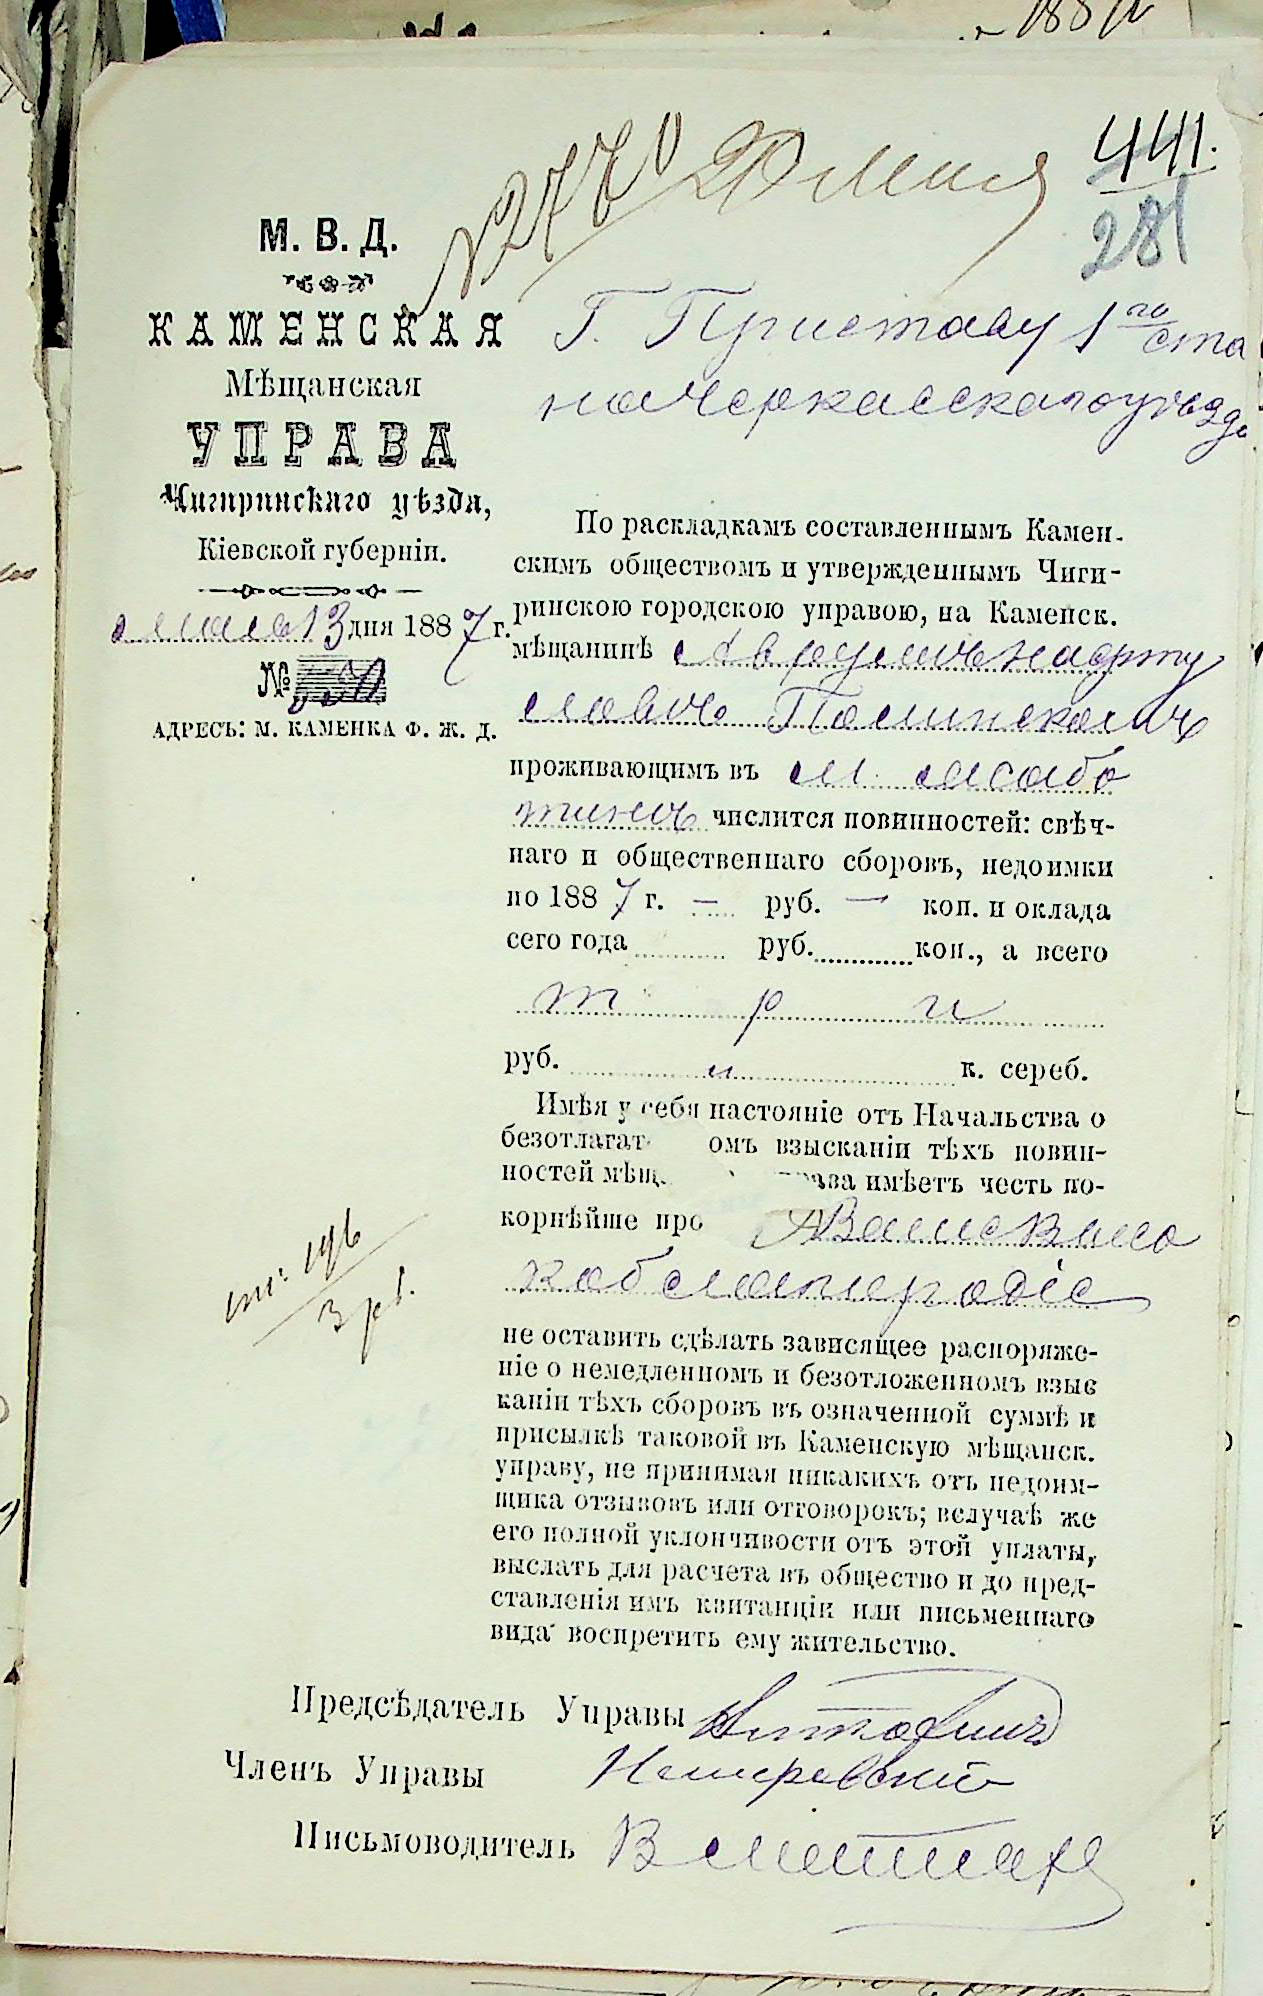 441.
281
М. В. Д.
КАМЕНСКАЯ
Мѣщанская
УПРАВА
Чигиринскаго уѣзда,
Кіевской губерніи.
мая 13 дня 1887 г.
№
АДРЕСЪ: М. КАМЕНКА Ф. Ж. Д.
Г. Приставу 1го ста
на Черкасскаго уѣзда
По раскладкамъ составленнымъ Камен-
скимъ обществомъ и утвержденнымъ Чиги-
ринскою городскою управою, на Каменск.
мѣщанинѣ
проживающимъ въ м. Смѣло
числится повинностей: свѣч-
наго и общественнаго сборовъ, недоимки
по 1887 г. — руб. — коп. и оклада
сего года руб. коп., а всего
три
руб. и к. сереб.
Имѣя у себя настояніе отъ Начальства о
безотлагат омъ взысканіи тѣхъ повин-
ностей мѣщ рава имѣетъ честь по-
корнѣйше про Ваше Высо
коблагородіе
не оставить сдѣлать зависящее распоряже-
ніе о немедленномъ и безотложенномъ взыс
каніи тѣхъ сборовъ въ означенной суммѣ и
присылкѣ таковой въ Каменскую мѣщанск.
управу, не принимая никакихъ отъ недоим-
щика отзывовъ или отговорокъ; вслучаѣ же
его полной уклончивости отъ этой уплаты,
выслать для расчета въ общество и до пред-
ставленія имъ квитанціи или письменнаго
вида воспретить ему жительство.
3 рб.
Предсѣдатель Управы
Членъ Управы
Письмоводитель